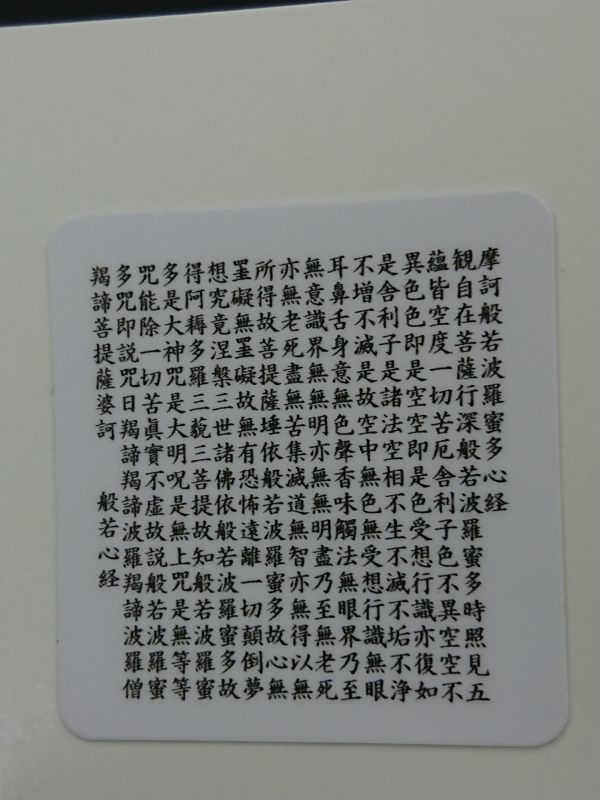 摩訶般若波羅蜜多心経
観自在菩薩行深般若波羅蜜多時照見五
蘊皆空度一切苦厄舎利子色不異空空不
異色色即是空空即是色受想行識亦復如
是舎利子是諸法空相不生不滅不垢不浄
不増不滅是故空中無色無受想行識無眼
耳鼻舌身意無色聲香味觸法無眼界乃至
無意識界無無明亦無無明盡乃至無老死
亦無老死盡無苦集滅道無智亦無得以無
所得故菩提薩埵依般若波羅蜜多故心無
罣礙無罣礙故無有恐怖遠離一切顛倒夢
想究竟涅槃三世諸佛依般若波羅蜜多故
得阿耨多羅三藐三菩提故知般若波羅蜜
多是大神咒是大明呪是無上咒是無等等
咒能除一切苦眞實不虚故説般若波羅蜜
多咒即説咒日羯諦羯諦波羅羯諦波羅僧
羯諦菩提薩婆訶
般若心経